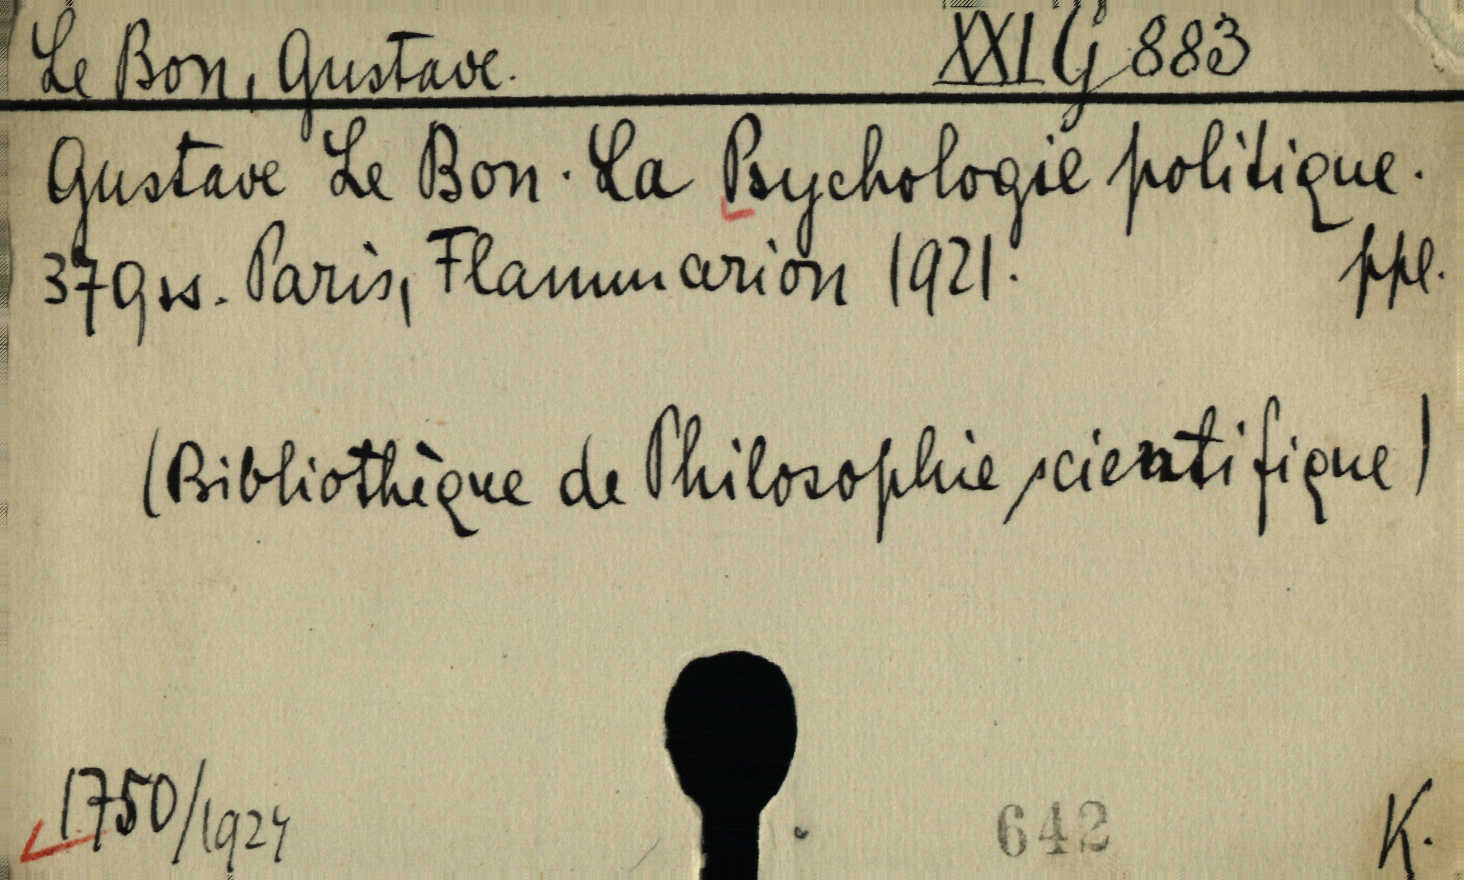 Le Bon, Gustave. XXI G 883
Gustave Le Bon. La Psychologie politique.
379 ss. Paris, Flammarion 1921. ppl.
(Bibliothèque de Philosophie scientifique)
1750/1924
642
K.